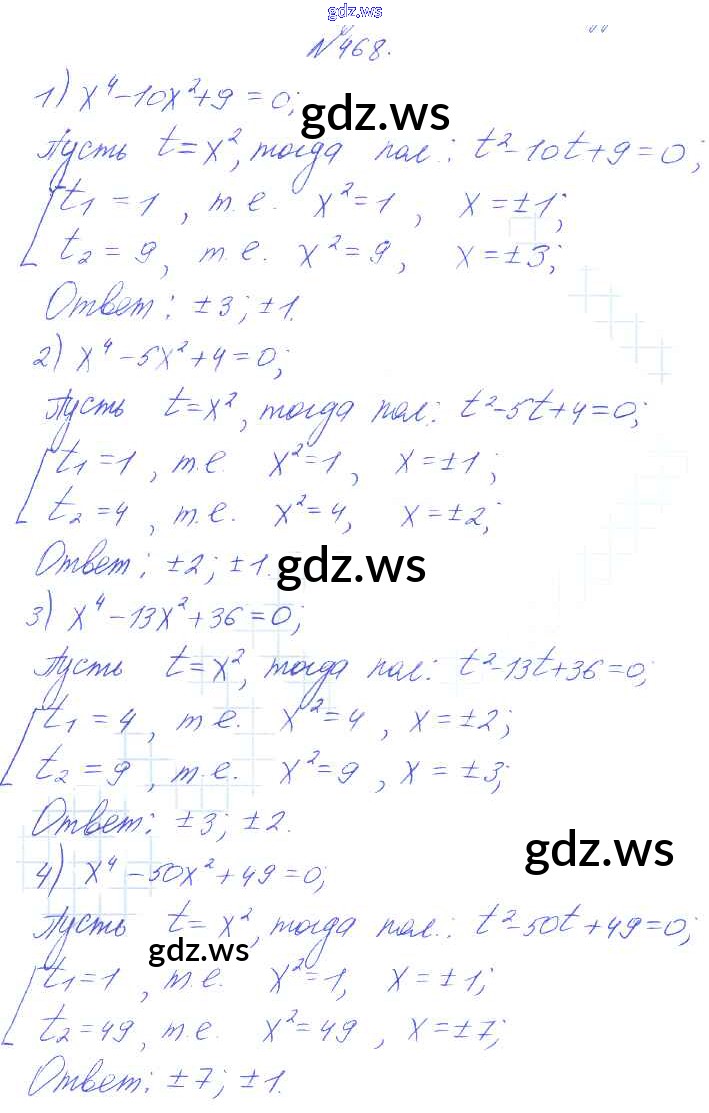 gdz.ws
№468.
1) x⁴-10x²+9=0;
gdz.ws
Пусть t=x², тогда пол: t²-10t+9=0;
[t₁=1, т.е. x²=1, x=±1;
t₂=9, т.е. x²=9, x=±3;
Ответ: ±3; ±1.
2) x⁴-5x²+4=0;
Пусть t=x², тогда пол: t²-5t+4=0;
[t₁=1, т.е. x²=1, x=±1;
t₂=4, т.е. x²=4, x=±2;
Ответ: ±2; ±1.
gdz.ws
3) x⁴-13x²+36=0;
Пусть t=x², тогда пол: t²-13t+36=0;
[t₁=4, т.е. x²=4, x=±2;
t₂=9, т.е. x²=9, x=±3;
Ответ: ±3; ±2.
gdz.ws
4) x⁴-50x²+49=0;
Пусть t=x², тогда пол: t²-50t+49=0;
gdz.ws
[t₁=1, т.е. x²=1, x=±1;
t₂=49, т.е. x²=49, x=±7;
Ответ: ±7; ±1.